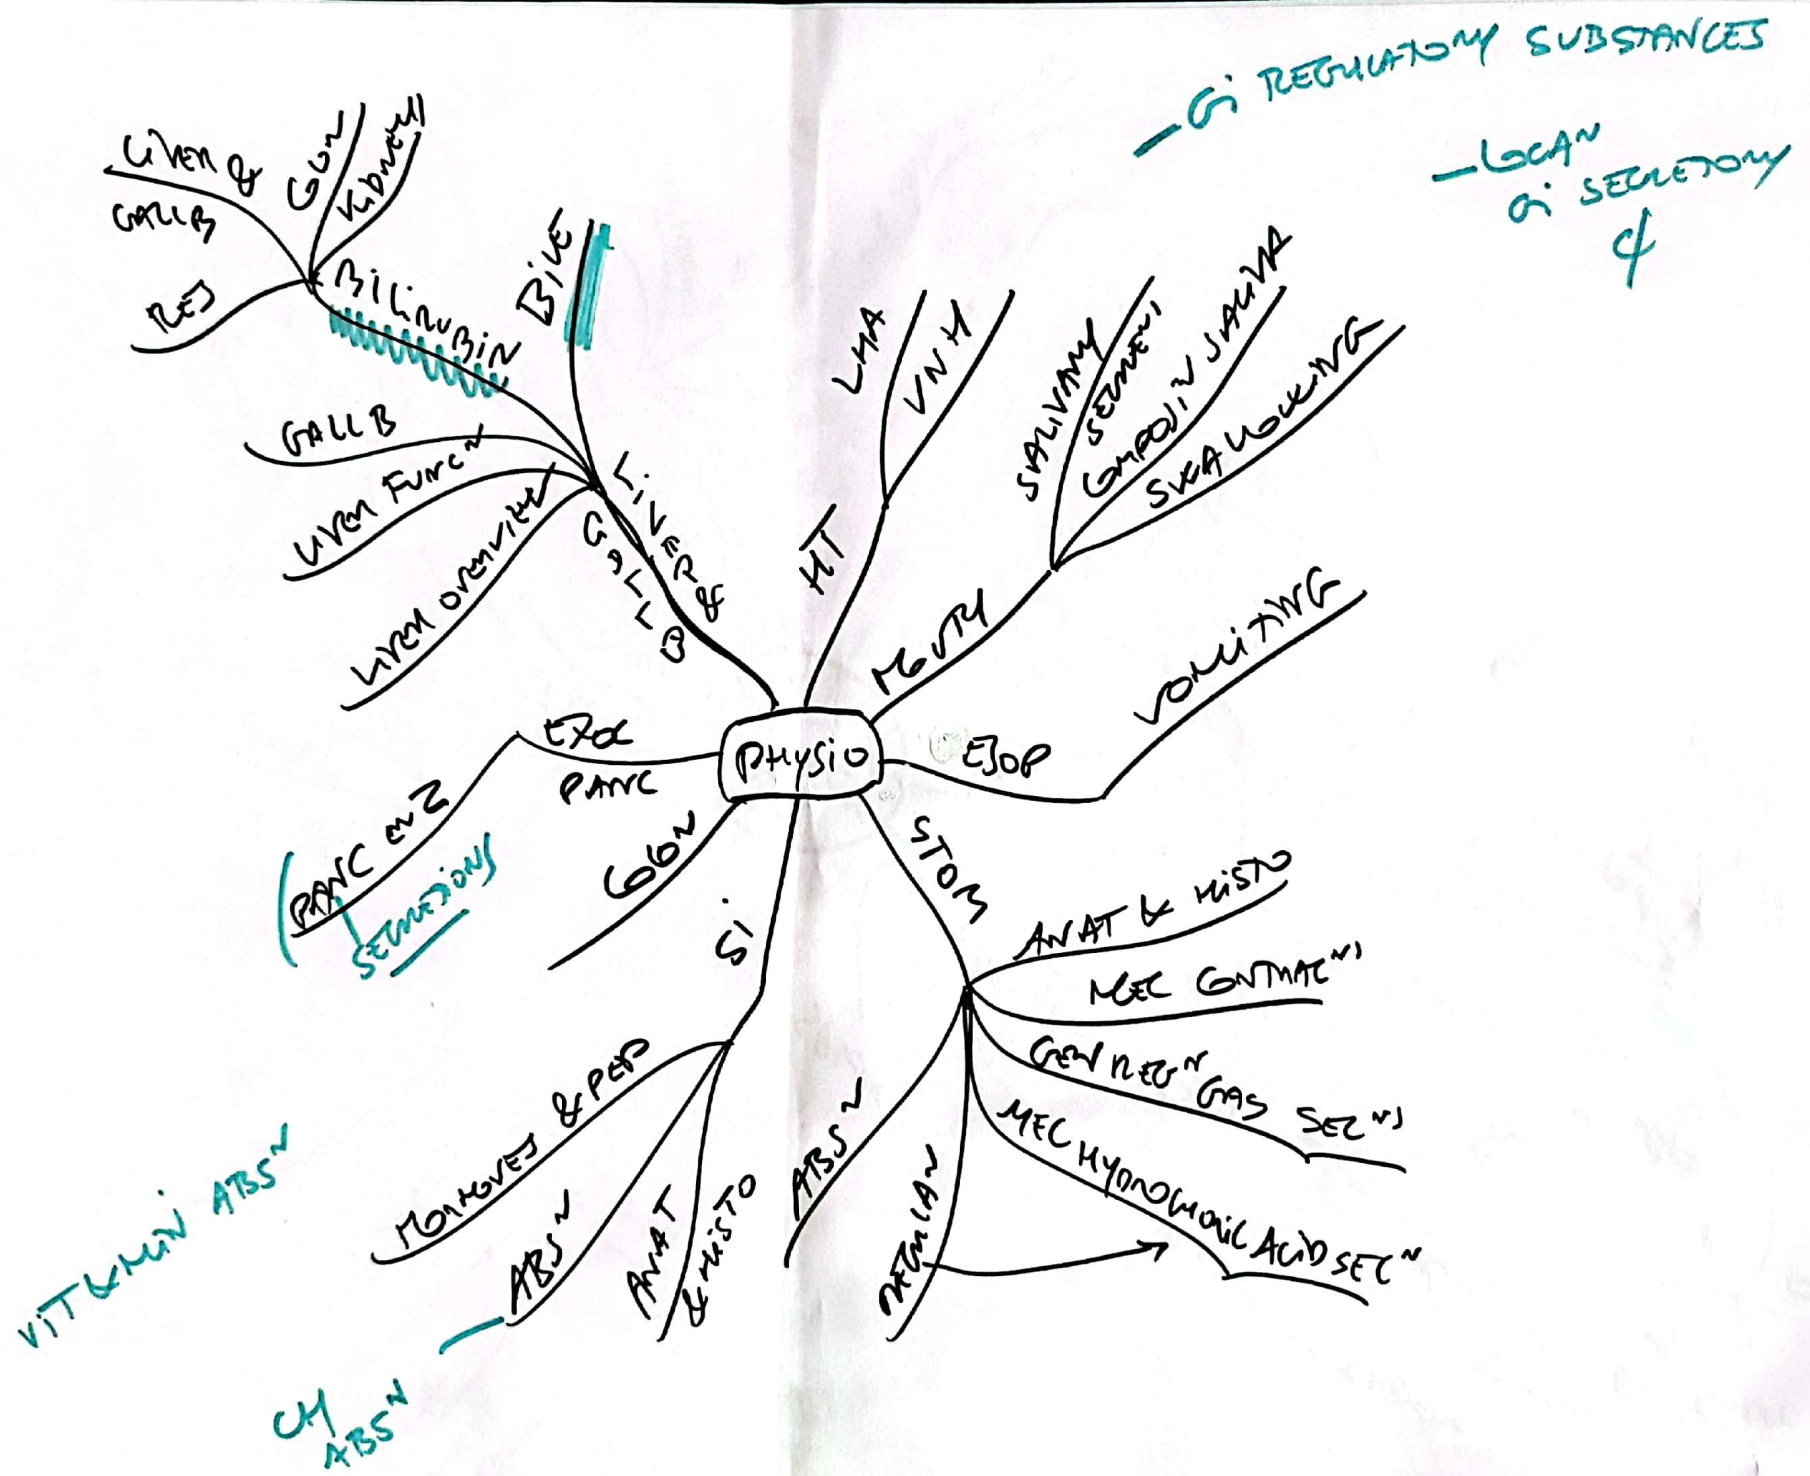 Gi REGULATORY SUBSTANCES
LOCAN
Gi SECRETORY
LIVER &
GALLB
COLN
KIDNEYS
RES
BILIRUBIN
BILE
GALLB
LIVER FUNCN
LIVER OVERVIEW
LIVER &
GALLB
HT
LHA
VNH
MOUTH
SALIVARY
SECRENS
COMPOSIN SALIVA
SWALLOWING
PHYSIO
ESOP
VOMITING
EXOC
PANC
PANC ENZ
SECRETIONS
COLN
STOM
ANAT & HISTO
MEC CONTRACNS
GEN REGN GAS SECNS
MEC HYDROCHLORIC ACID SECN
REGULAN
ABSN
Si
MORMOVES & PEP
ABSN
ANAT
& HISTO
VITAMIN ABSN
CH
ABSN